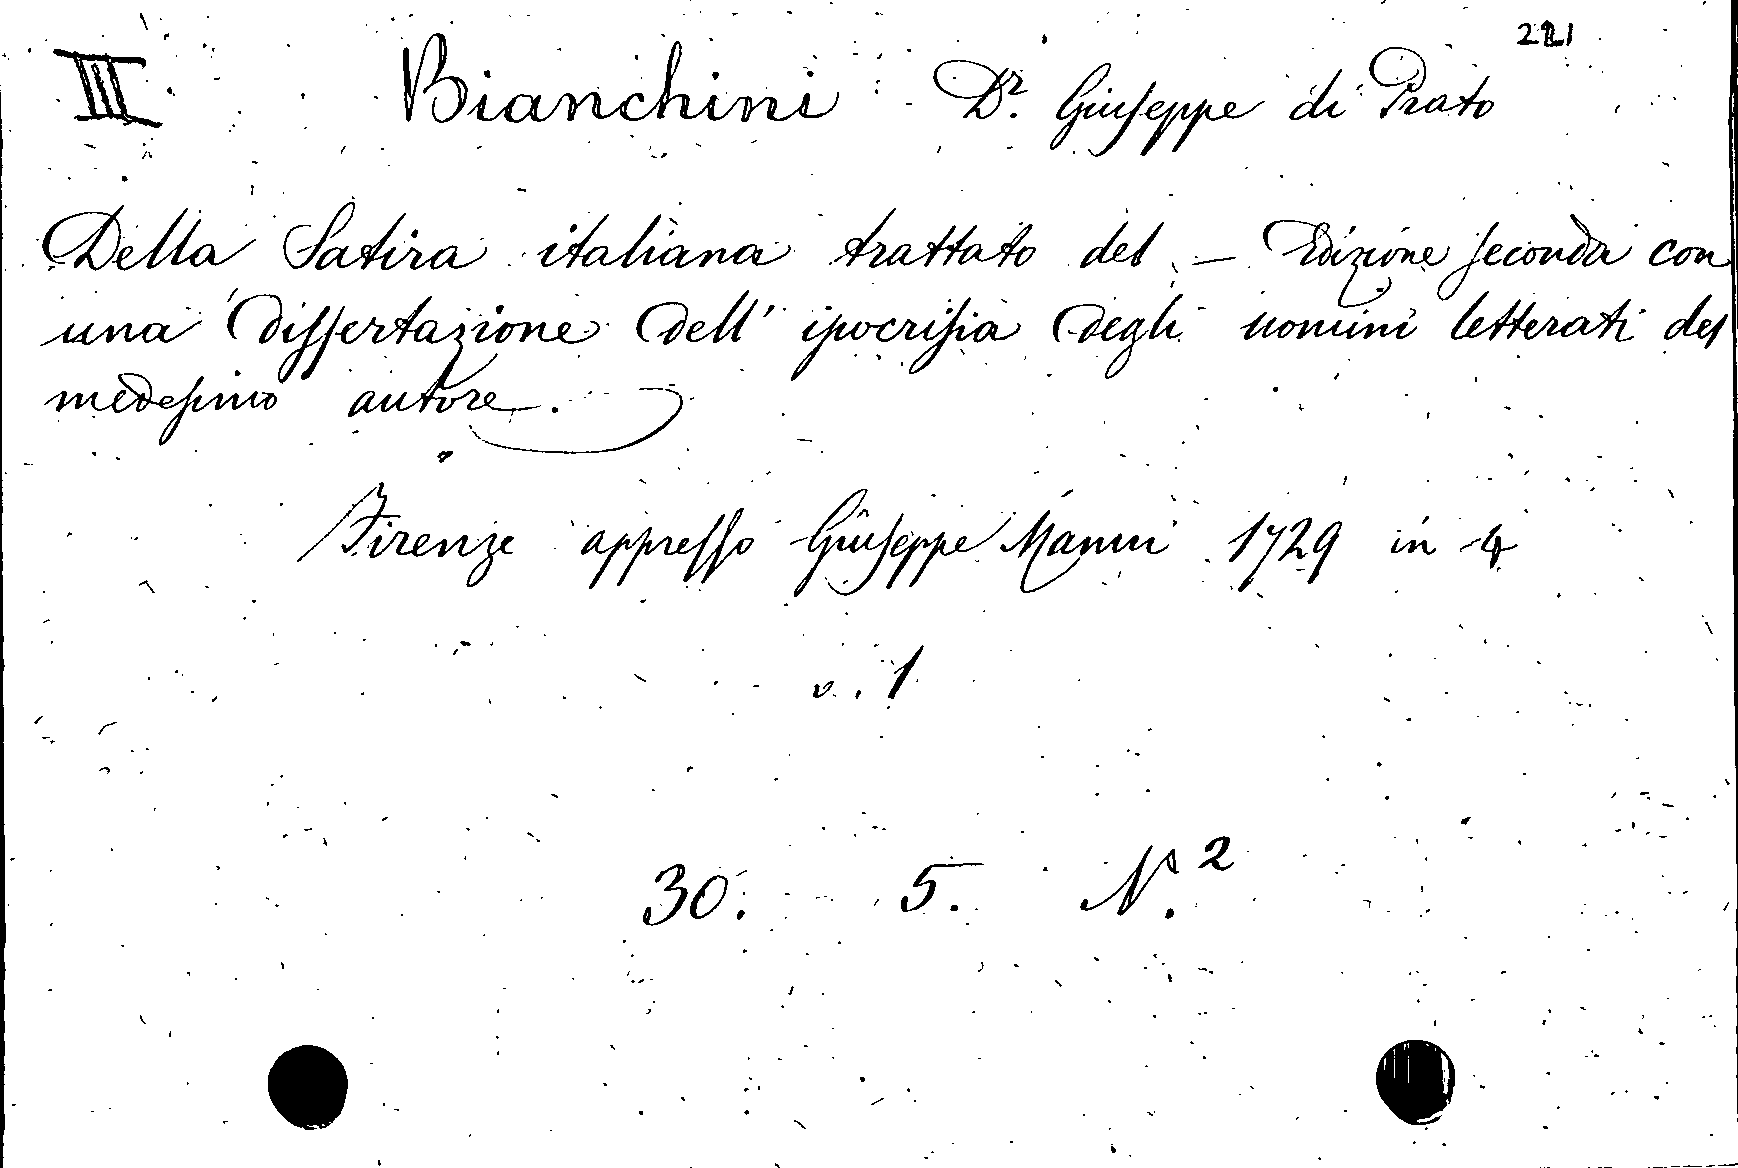 221
III Bianchini Dr. Giuseppe di Prato
Della Satira italiana trattato del – Edizione seconda con
una dissertazione dell' ipocrisia degli uomini letterati del
medesimo autore.
Firenze appresso Giuseppe Manni 1729 in 4
v. 1
30. 5. N. 2